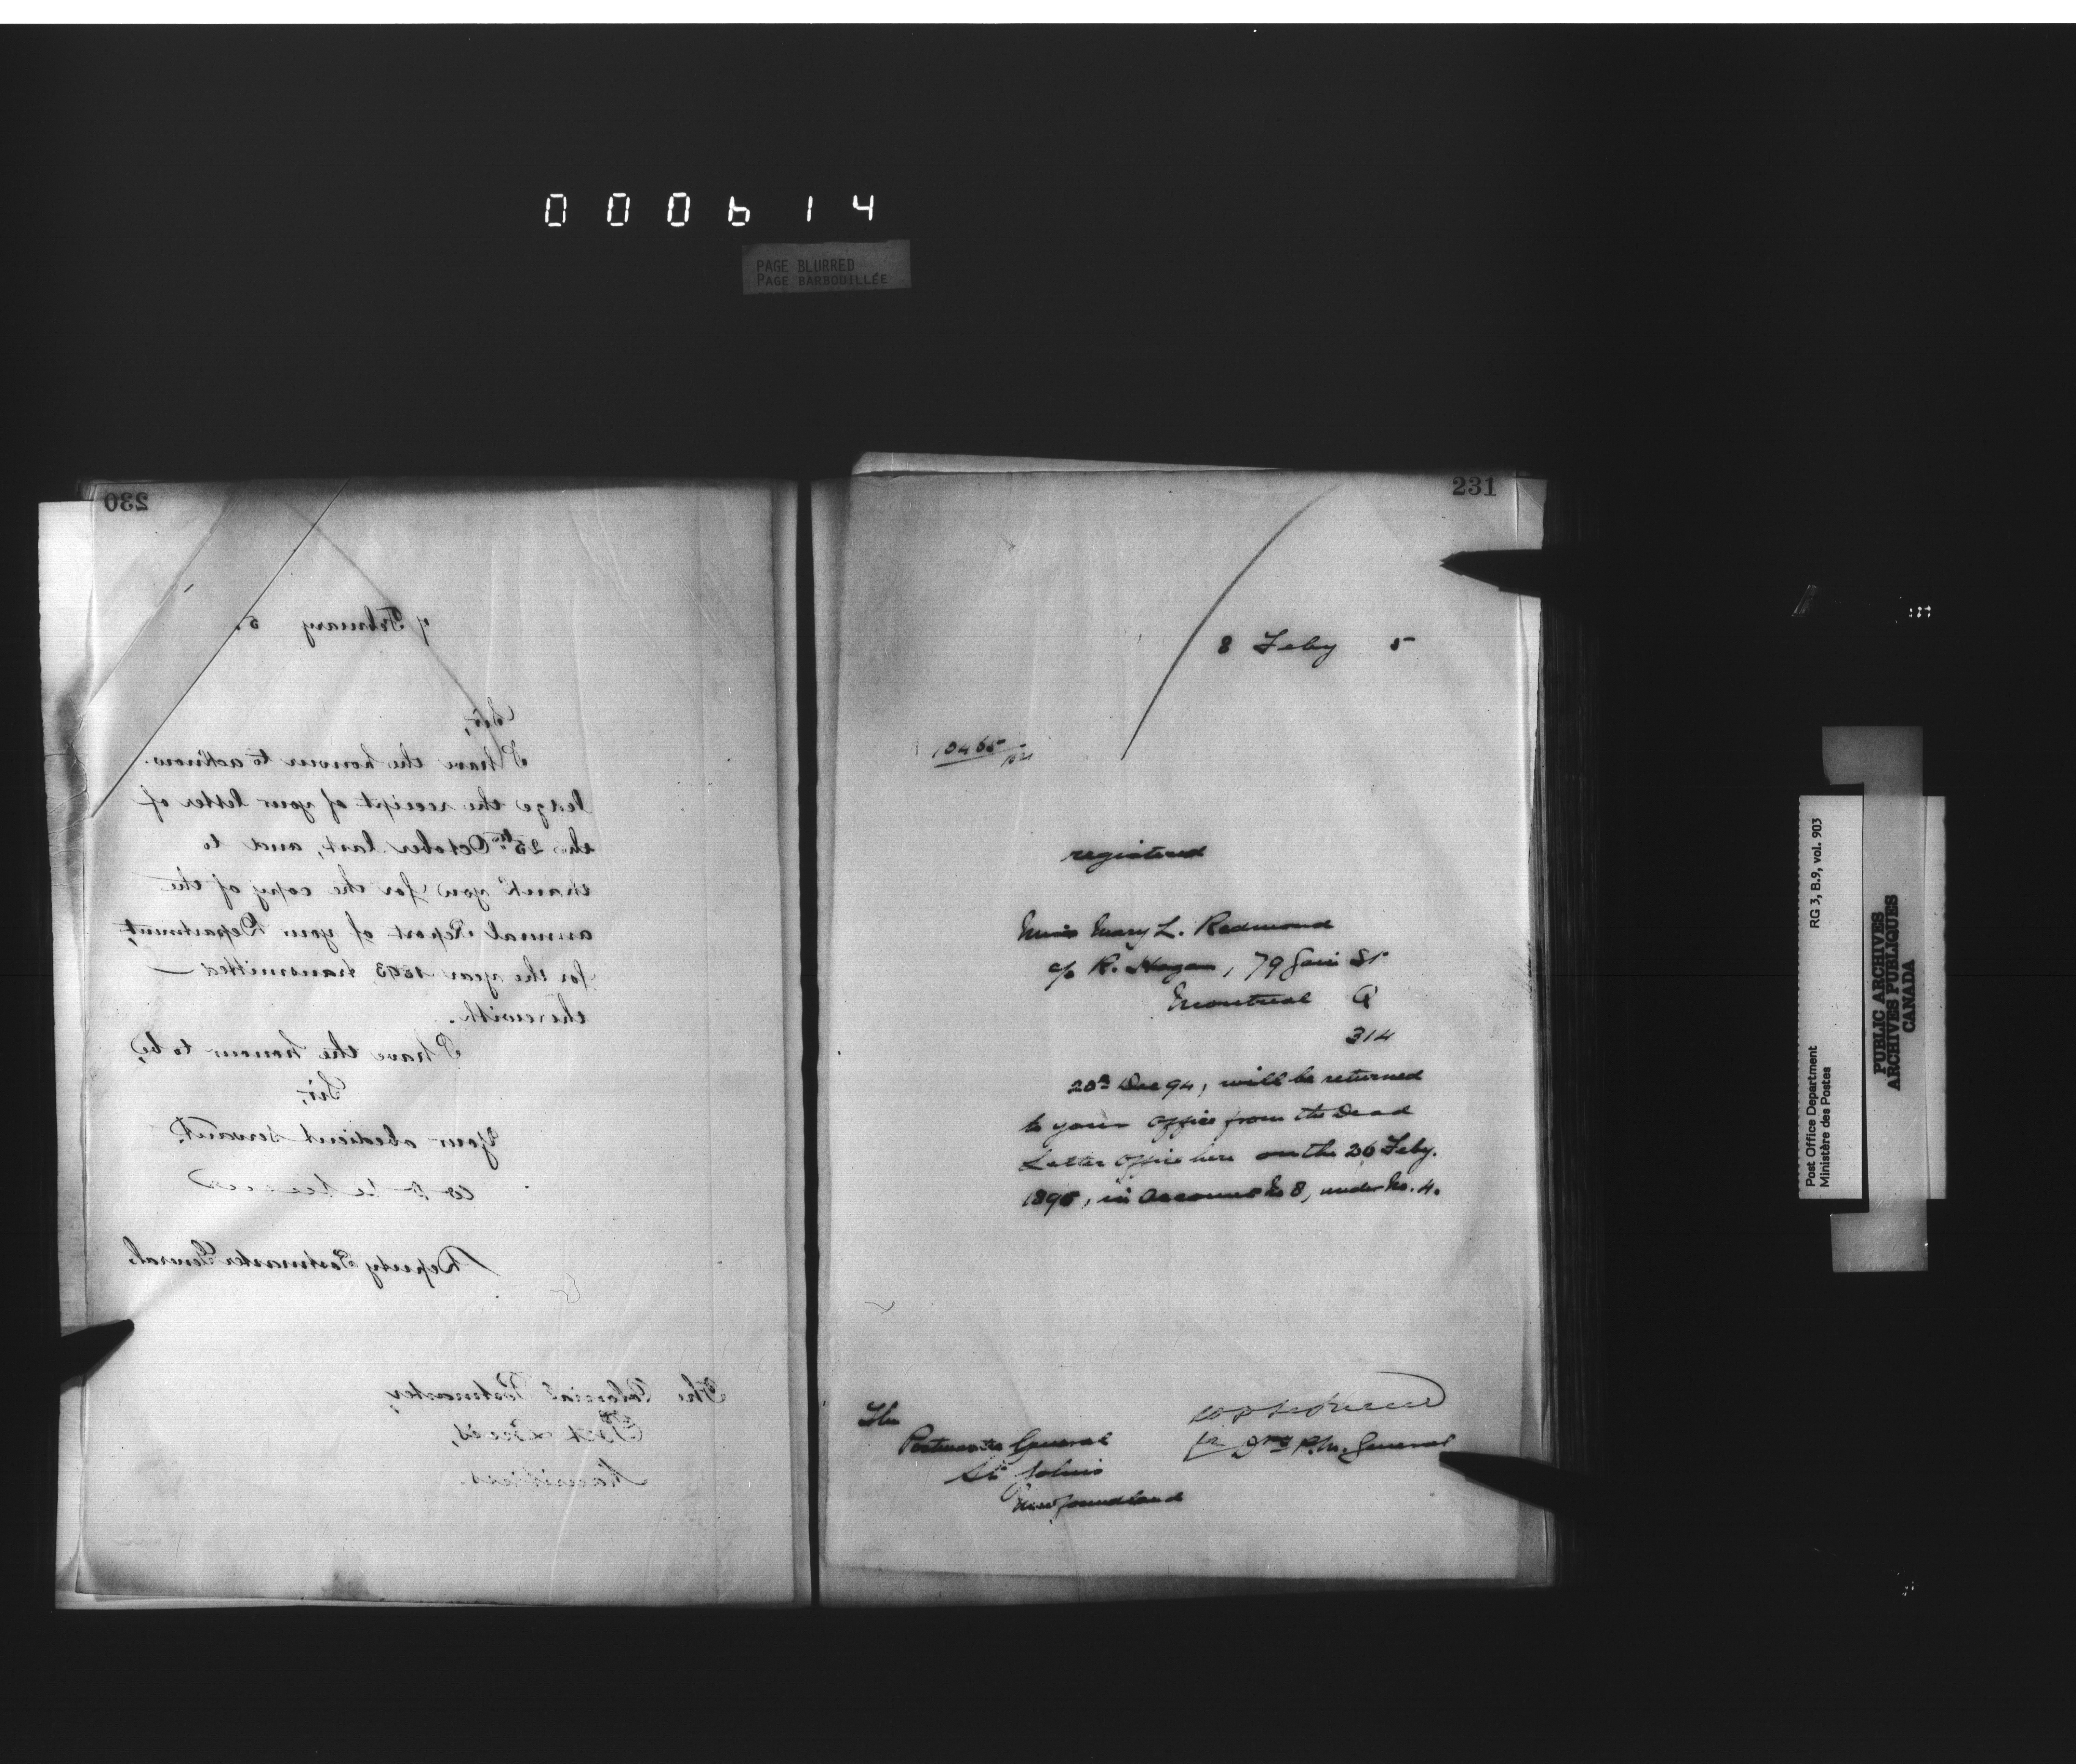 000614
PAGE BLURRED
PAGE BARBOUILLÉE
230
7 February 5.
Sir,
I have the honour to acknow-
ledge the receipt of your letter of
the 25th October last, and to
thank you for the copy of the
annual Report of your Department,
for the year 1893, transmitted
therewith.
I have the honour to be,
Sir,
Your obedient servant,
Deputy Postmaster General.
The Colonial Postmaster,
Port Louis,
Mauritius.
231
8 Feby 5
registered
Miss Mary L. Redmond
c/o R. Hogan, 79 St
Montreal Q
314
20 Dec 94, will be returned
to your Office from the Dead
Letter Office here on the 26 Feby.
1895, in Account No 8, under No. 4.
for P.M. General
The
Postmaster General
St John's
Newfoundland
Post Office Department RG 3, B.9, vol. 903
Ministère des Postes
PUBLIC ARCHIVES
ARCHIVES PUBLIQUES
CANADA